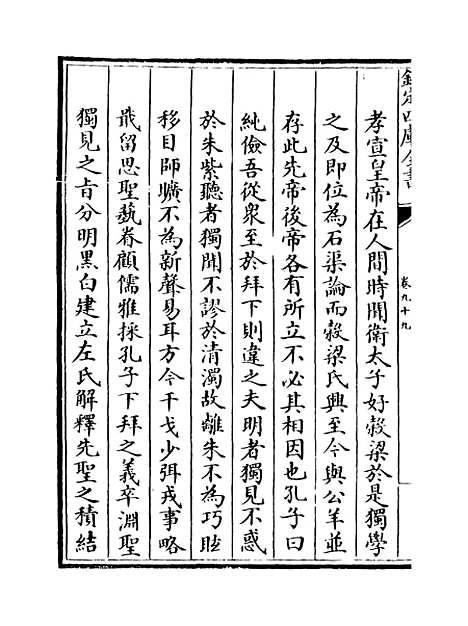 欽定四庫全書
卷九十九
孝宣皇帝在人間時聞衛太子好穀梁於是獨學
之及即位為石渠論而穀梁氏興至今與公羊並
存此先帝後帝各有所立不必其相因也孔子曰
純儉吾從衆至於拜下則違之夫明者獨見不惑
於朱紫聽者獨聞不謬於清濁故離朱不為巧眩
移目師曠不為新聲易耳方今干戈少弭戎事略
戢留思聖藝眷顧儒雅採孔子下拜之義卒淵聖
獨見之旨分明黑白建立左氏解釋先聖之積結